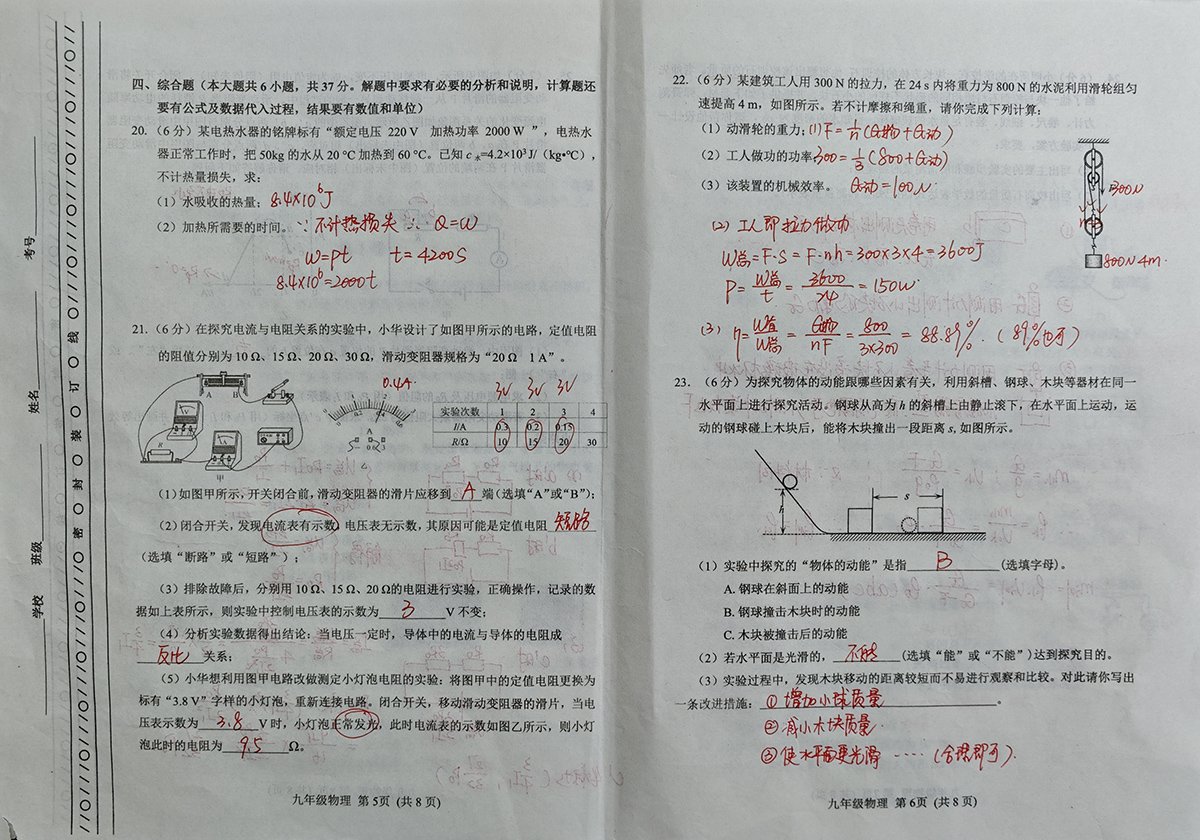 考号
姓名
班级
学校
密 封 装 订 线
四、综合题（本大题共 6 小题，共 37 分。解题中要求有必要的分析和说明，计算题还
要有公式及数据代入过程，结果要有数值和单位）
20.（6 分）某电热水器的铭牌标有“额定电压 220 V 加热功率 2000 W ”，电热水
器正常工作时，把 50kg 的水从 20 °C 加热到 60 °C。已知 c水=4.2×10³ J/（kg•°C），
不计热量损失，求：
（1）水吸收的热量； 8.4×10⁶J
（2）加热所需要的时间。 ∵不计热损失 ∴ Q=W
W=Pt t=4200S
8.4×10⁶=2000t
21.（6 分）在探究电流与电阻关系的实验中，小华设计了如图甲所示的电路，定值电阻
的阻值分别为 10 Ω、15 Ω、20 Ω、30 Ω，滑动变阻器规格为“20 Ω 1 A”。
0.4A 3V 3V 3V
实验次数 1 2 3 4
I/A 0.3 0.2 0.15
R/Ω 10 15 20 30
A B
R
A
（1）如图甲所示，开关闭合前，滑动变阻器的滑片应移到 A 端（选填“A”或“B”）；
（2）闭合开关，发现电流表有示数，电压表无示数，其原因可能是定值电阻 短路
（选填“断路”或“短路”）；
（3）排除故障后，分别用 10 Ω、15 Ω、20 Ω的电阻进行实验，正确操作，记录的数
据如上表所示，则实验中控制电压表的示数为 3 V 不变；
（4）分析实验数据得出结论：当电压一定时，导体中的电流与导体的电阻成
反比 关系；
（5）小华想利用图甲电路改做测定小灯泡电阻的实验：将图甲中的定值电阻更换为
标有“3.8 V”字样的小灯泡，重新连接电路。闭合开关，移动滑动变阻器的滑片，当电
压表示数为 3.8 V 时，小灯泡正常发光，此时电流表的示数如图乙所示，则小灯
泡此时的电阻为 9.5 Ω。
九年级物理 第 5页 (共 8 页)
22.（6 分）某建筑工人用 300 N 的拉力，在 24 s 内将重力为 800 N 的水泥利用滑轮组匀
速提高 4 m，如图所示。若不计摩擦和绳重，请你完成下列计算：
（1）动滑轮的重力； (1) F=1/n(G物+G动)
（2）工人做功的功率 300=1/3(800+G动)
（3）该装置的机械效率。 G动=100N.
300N
800N 4m.
(2) 工人即拉力做功
W总=F·S=F·nh=300×3×4=3600J
P=W总/t=3600/24=150W
(3) η=W有/W总=G物/nF=800/3×300=88.89%.（89%也可）
23.（6 分）为探究物体的动能跟哪些因素有关，利用斜槽、钢球、木块等器材在同一
水平面上进行探究活动。钢球从高为 h 的斜槽上由静止滚下，在水平面上运动，运
动的钢球碰上木块后，能将木块撞出一段距离 s, 如图所示。
h s
（1）实验中探究的“物体的动能”是指 B (选填字母)。
A. 钢球在斜面上的动能
B. 钢球撞击木块时的动能
C. 木块被撞击后的动能
（2）若水平面是光滑的， 不能 (选填“能”或“不能”)达到探究目的。
（3）实验过程中，发现木块移动的距离较短而不易进行观察和比较。对此请你写出
一条改进措施： ①增加小球质量 。
②减小木块质量
③使水平面更光滑 ……（合理即可）.
九年级物理 第 6页 (共 8 页)